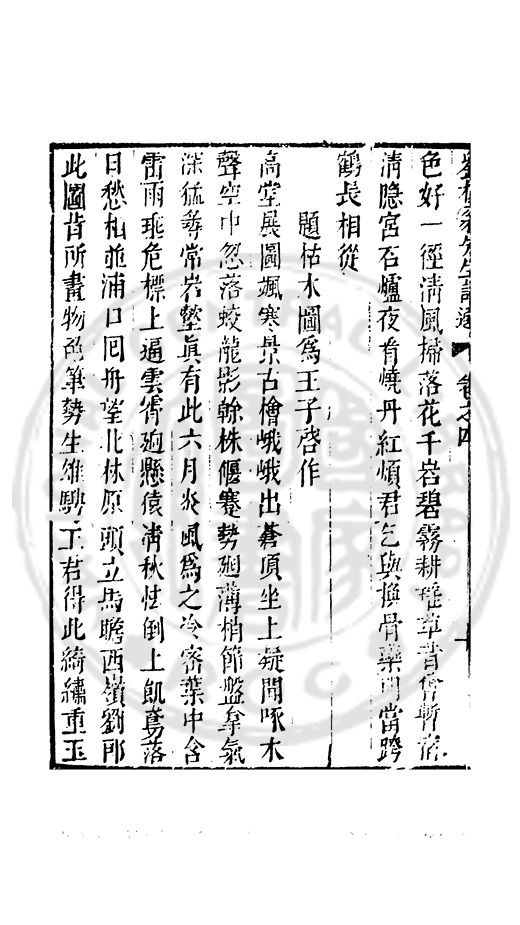 色好一徑淸風掃落花千岩碧霧耕瑤草昔曾暫宿
淸隐宮石爐夜看燒丹紅煩君乞與換骨藥門當跨
鶴長相從
題枯木圖爲王子啓作
高堂展圖颯寒景古檜峨峨出蒼頂坐上疑聞啄木
聲空中忽落蛟龍影榦株偃蹇勢廻薄梢節盤拏氣
深猛尋常岩壑眞有此六月炎風爲之冷密葉中含
雷雨垂危標上逼雲霄廻懸猿淸秋怯倒上飢鳶落
日愁相並浦口囘舟望北林原頭立馬瞻西嶺劉郎
此圖昔所畫物色筆勢生雄騁王君得此綺繡重玉